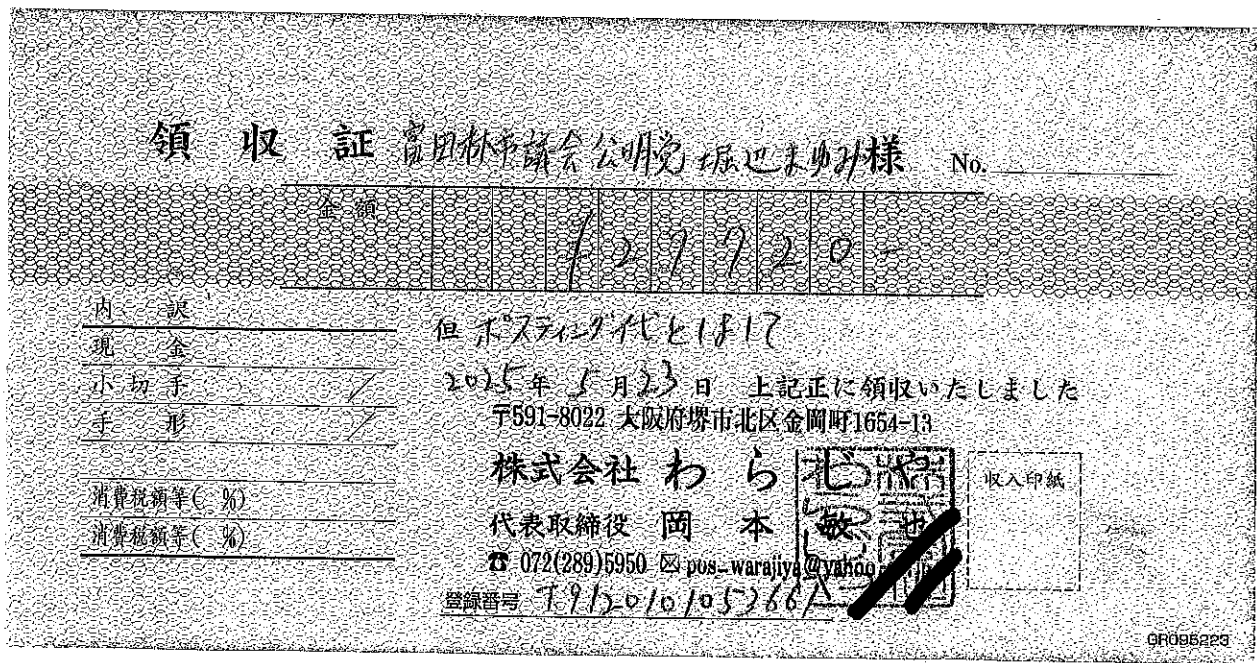 領収証 富田林市議会公明党 堀辺まゆみ様 No.
金額 127720-
内訳
現金
小切手 /
手形 /
消費税額等( %)
消費税額等( %)
但 ポスティング代としまして
2025年5月23日 上記正に領収いたしました
〒591-8022 大阪府堺市北区金岡町1654-13
株式会社 わらじや
代表取締役 岡本敏也
☎ 072(289)5950 ✉ pos_warajiya@yahoo
登録番号 T9120101053667
収入印紙
GR095223